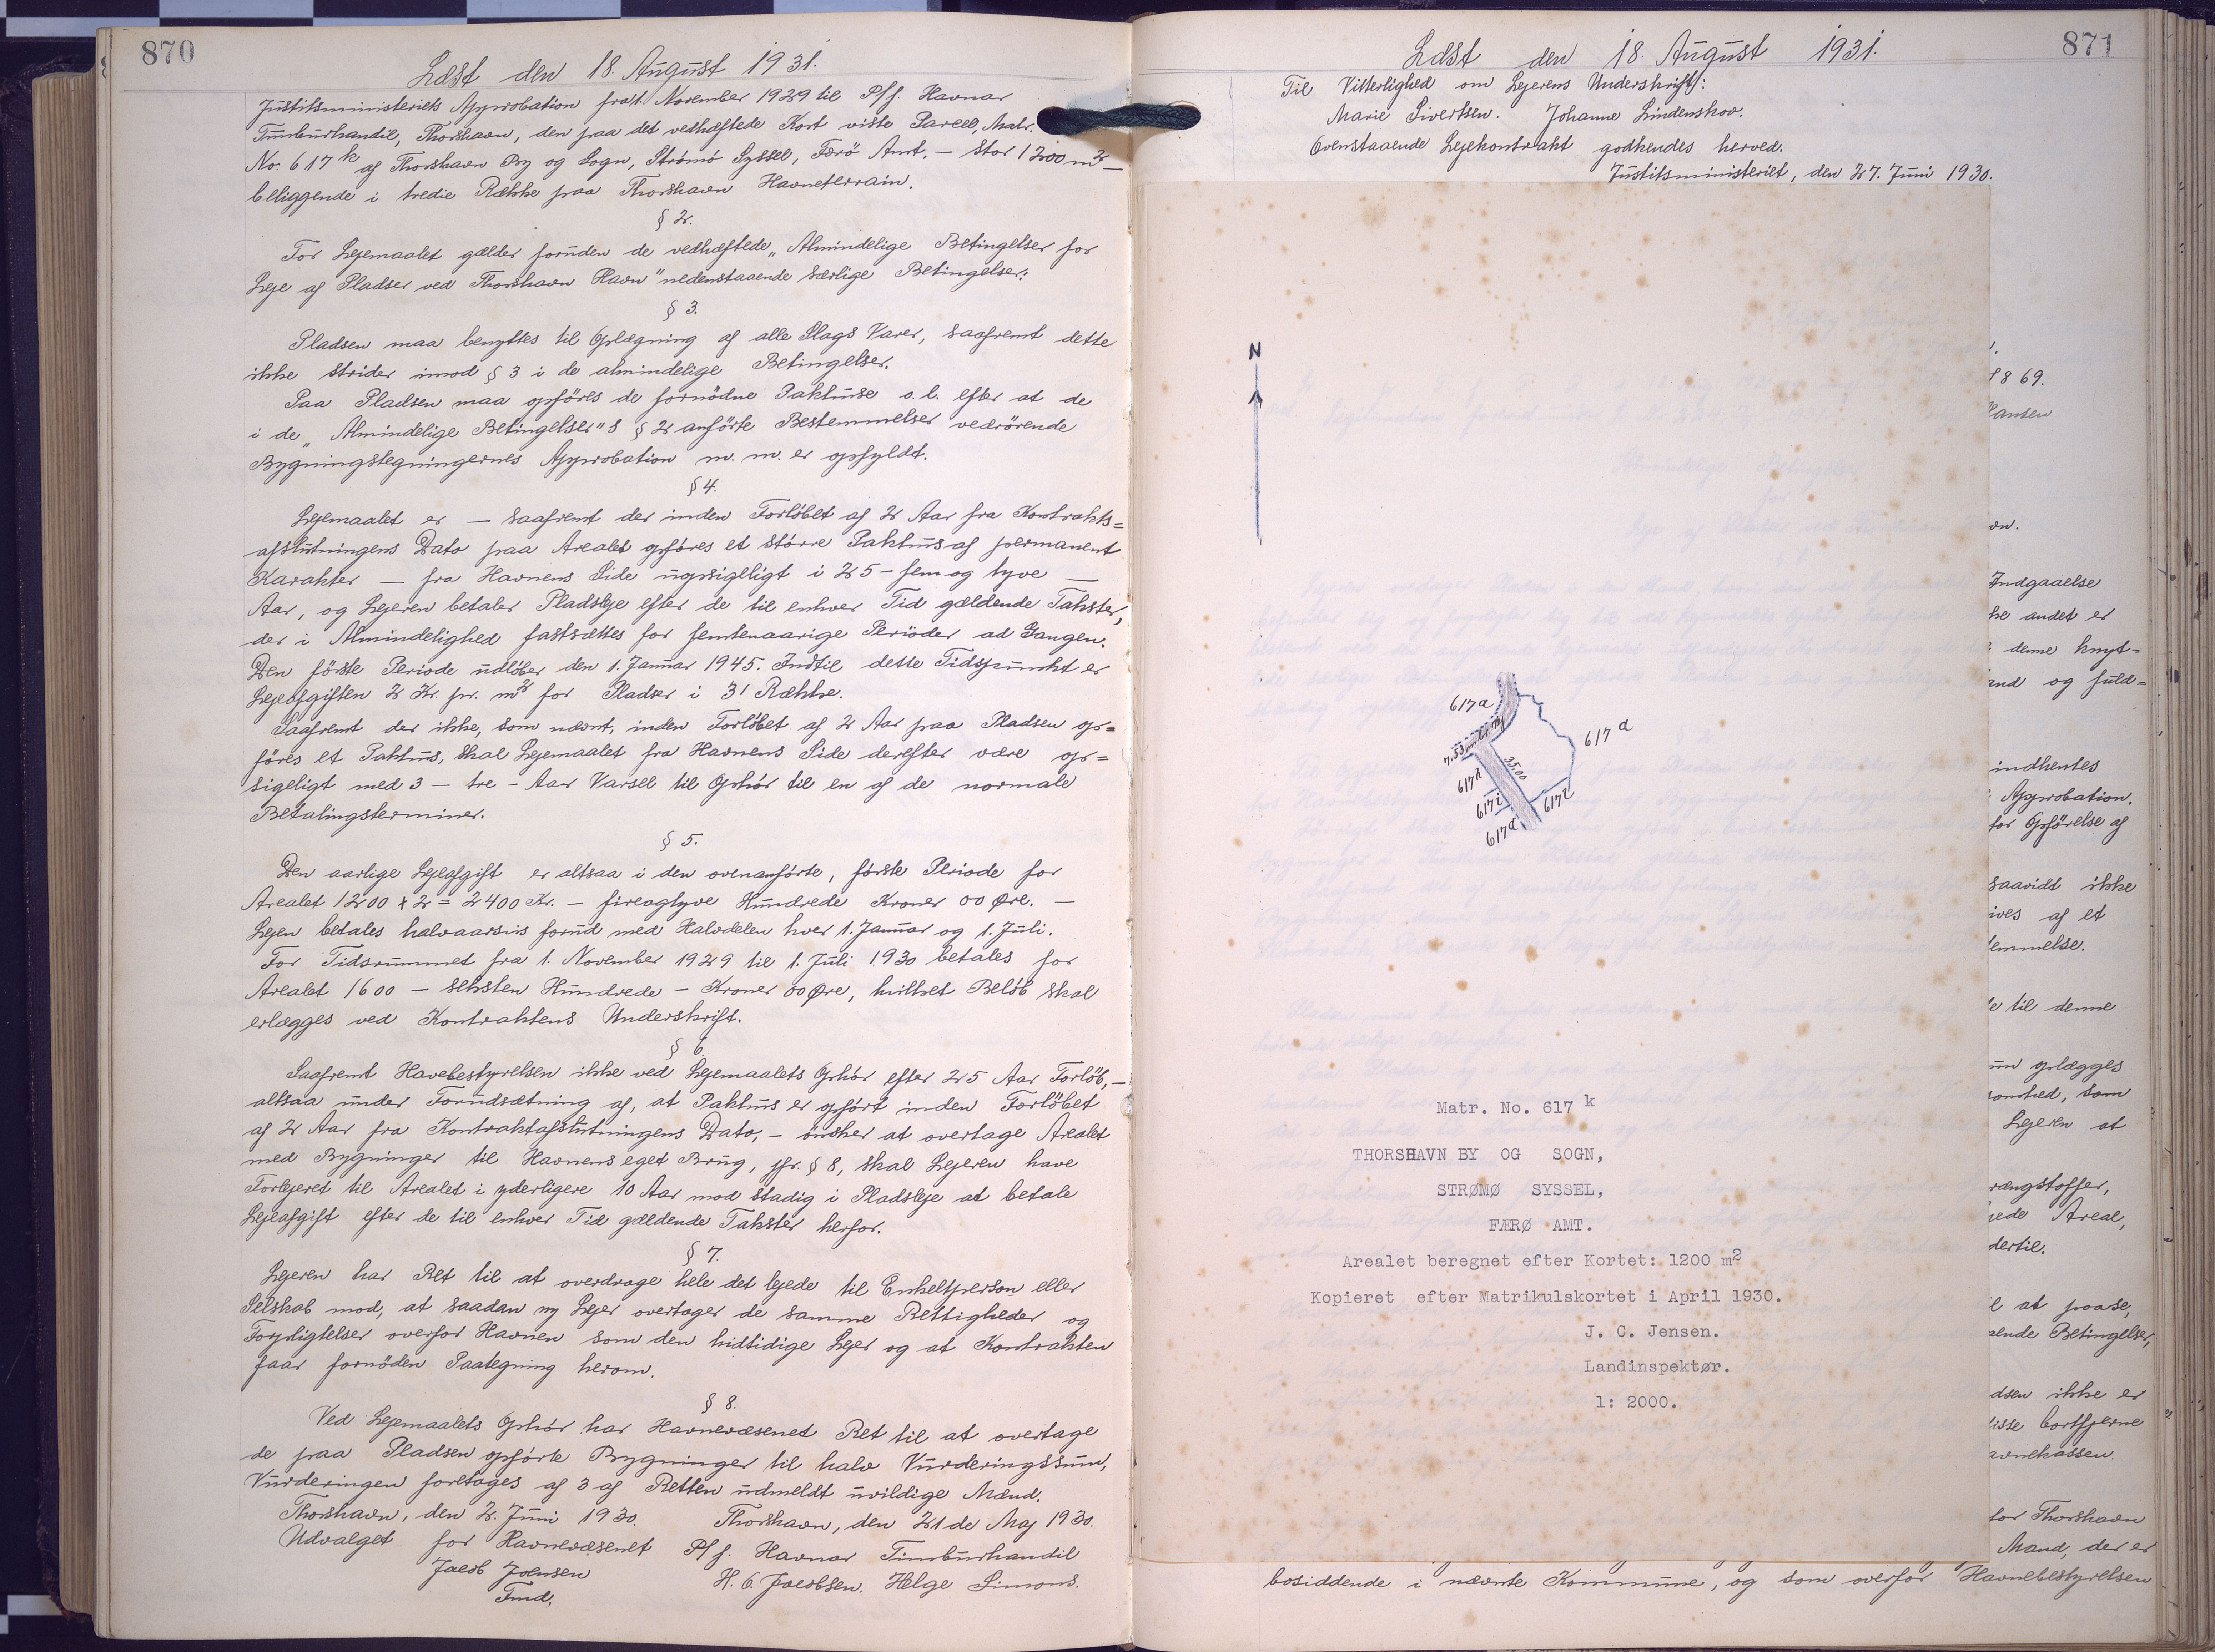 870
Læst den 18. August 1931.
Justitsministeriets Approbation fra 1. November 1929 til P/f. Havnar
Timburhandil, Thorshavn, den paa det vedhæftede Kort viste Parcel, Matr.
No. 617 k af Thorshavn By og Sogn, Strømø Syssel, Færö Amt. – stor 1200 m2 –
beliggende i tredie Række paa Thorshavn Havneterrain.
§ 2.
For Lejemaalet gælder foruden de vedhæftede „Almindelige Betingelser for
Leje af Pladser ved Thorshavn Havn" nedenstaaende særlige Betingelser:
§ 3.
Pladsen maa benyttes til Oplægning af alle Slags Varer, saafremt dette
ikke strider imod § 3 i de almindelige Betingelser.
Paa Pladsen maa opföres de fornödne Pakhuse o.l. efter at de
i de „Almindelige Betingelser"s § 2 anförte Bestemmelser vedrörende
Bygningstegningernes Approbation m. m. er opfyldt.
§ 4.
Lejemaalet er – saafremt der inden Forlöbet af 2 Aar fra Kontrakts=
afslutningens Dato paa Arealet opföres et större Pakhus af permanent
Karakter – fra Havnens Side uopsigeligt i 25 – fem og tyve –
Aar, og Lejeren betaler Pladsleje efter de til enhver Tid gældende Takster,
der i Almindelighed fastsættes for femtenaarige Perioder ad Gangen.
Den förste Periode udlöber den 1. Januar 1945. Indtil dette Tidspunkt er
Lejeafgiften 2 Kr. pr. m2 for Pladser i 3' Række.
Saafremt der ikke, som nævnt, inden Forlöbet af 2 Aar paa Pladsen op=
föres et Pakhus, skal Lejemaalet fra Havnens Side derefter være op=
sigeligt med 3 – tre – Aar Varsel til Ophör til en af de normale
Betalingsterminer.
§ 5.
Den aarlige Lejeafgift er altsaa i den ovenanförte, förste Periode for
Arealet 1200 x 2 = 2400 Kr. – fireogtyve Hundrede Kroner 00 Øre. –
Lejen betales halvaarsvis forud med Halvdelen hver 1. Januar og 1. Juli.
For Tidsrummet fra 1. November 1929 til 1. Juli 1930 betales for
Arealet 1600 – seksten Hundrede – Kroner 00 Øre, hvilket Belöb skal
erlægges ved Kontraktens Underskrift.
§ 6.
Saafremt Havebestyrelsen ikke ved Lejemaalets Ophör efter 25 Aar Forlöb, –
altsaa under Forudsætning af, at Pakhus er opfört inden Forlöbet
af 2 Aar fra Kontraktafslutningens Dato, – önsker at overtage Arealet
med Bygninger til Havnens eget Brug, jfr. § 8, skal Lejeren have
Forlejeret til Arealet i yderligere 10 Aar mod stadig i Pladsleje at betale
Lejeafgift efter de til enhver Tid gældende Takster herfor.
§ 7.
Lejeren har Ret til at overdrage hele det lejede til Enkeltperson eller
Selskab mod, at saadan ny Lejer overtager de samme Rettigheder og
Forpligtelser overfor Havnen som den hidtidige Lejer og at Kontrakten
faar fornöden Paategning herom.
§ 8.
Ved Lejemaalets Ophör har Havnevæsenet Ret til at overtage
de paa Pladsen opförte Bygninger til halv Vurderingssum,
Vurderingen foretages af 3 af Retten udmeldt uvildige Mænd.
Thorshavn, den 2. Juni 1930. Thorshavn, den 21 de Maj 1930.
Udvalget for Havnevæsenet P/f. Havnar Timburhandil
Jacob Joensen H. C. Jacobsen. Helge Simons.
Fmd.
871
Læst den 18. August 1931.
Til Vitterlighed om Lejerens Underskrift:
Marie Sivertsen. Johanne Lindenskov.
Ovenstaaende Lejekontrakt godkendes herved.
Justitsministeriet, den 27. Juni 1930.
N
617 a
617 a
7.53 m
35.00
617 h
617 i
617 l
617 a
Matr. No. 617 k
THORSHAVN BY OG SOGN,
STRØMØ SYSSEL,
FÆRØ AMT.
Arealet beregnet efter Kortet: 1200 m2
Kopieret efter Matrikulskortet i April 1930.
J. C. Jensen.
Landinspektør.
1: 2000.
869.
Indgaaelse
andet er
denne knyt=
og fuld=
indhentes
Approbation.
for Opförelse af
saavidt ikke
af et
til denne
oplægges
som
Lejeren at
Areal,
dertil.
at passe,
Betingelser,
ikke er
bortfjerne
for Thorshavn
Mand, der er
bosiddende i nævnte Kommune, og som overfor Havnebestyrelsen